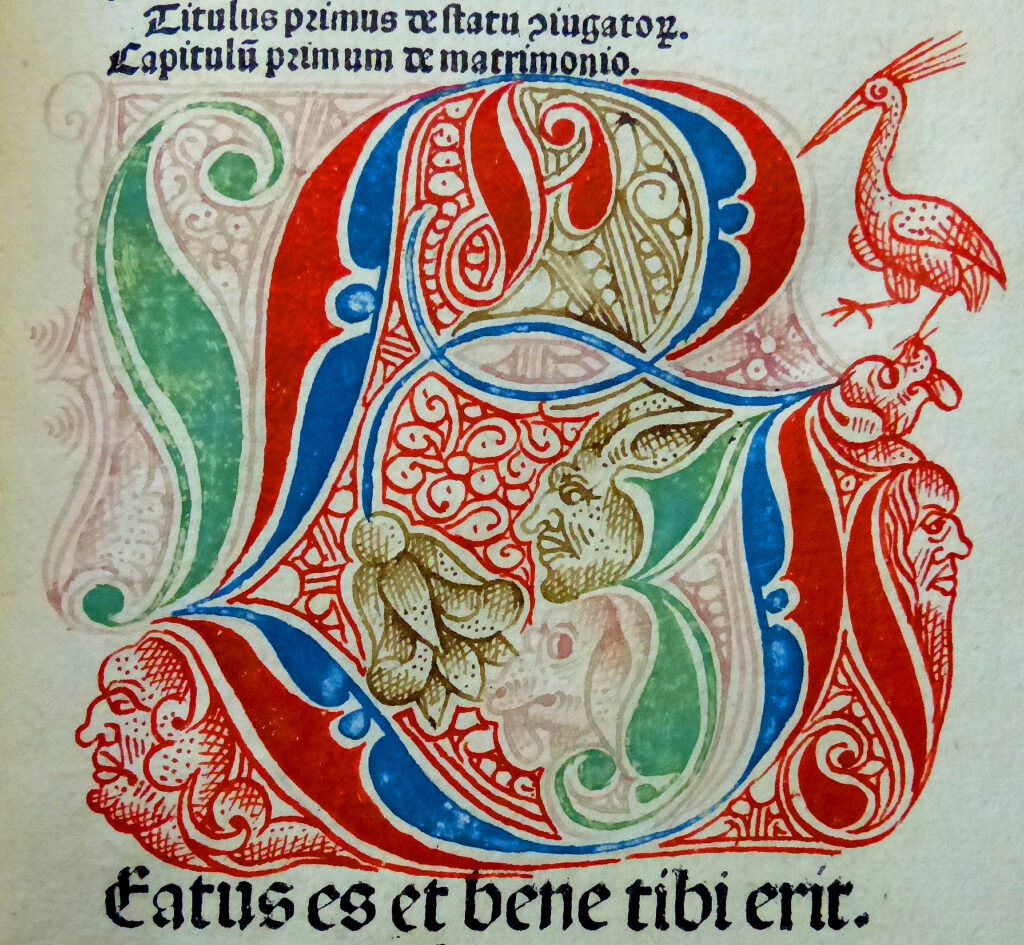 Titulus primus de statu ꝯiugatoꝝ.
Capitulū primum de matrimonio.
B
Eatus es et bene tibi erit.